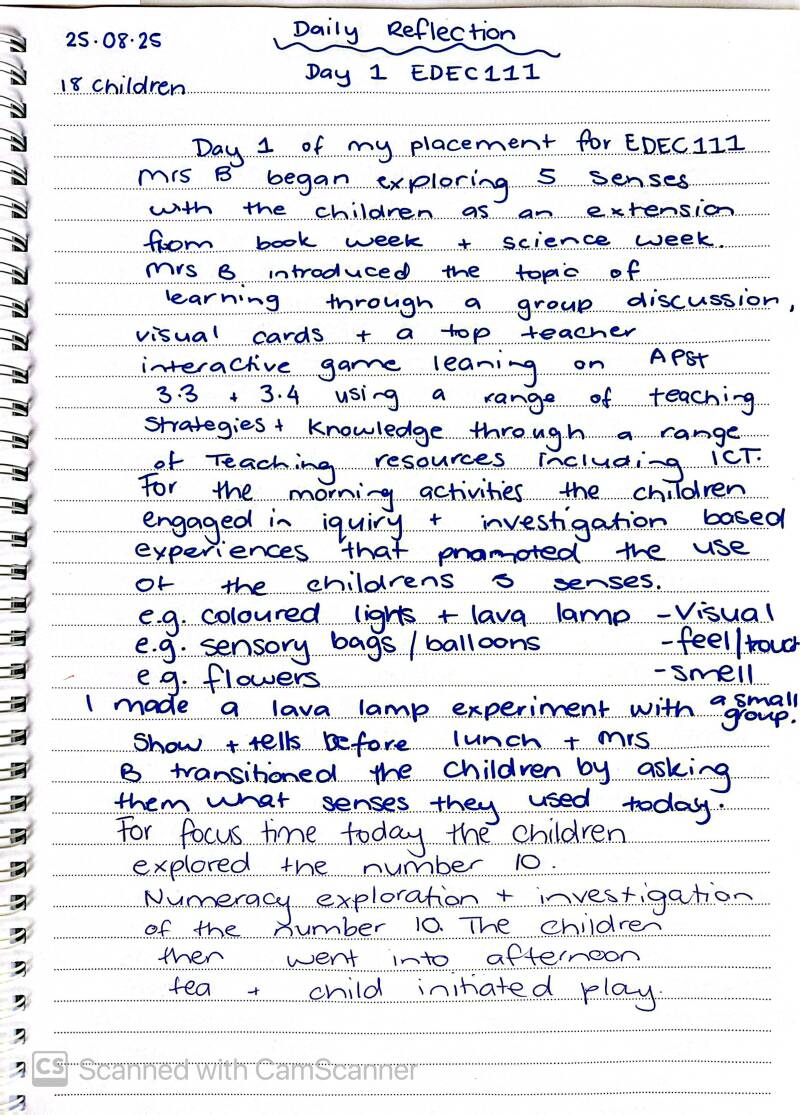 25.08.25
Daily Reflection
Day 1 EDEC111
18 children
Day 1 of my placement for EDEC111
Mrs B began exploring 5 senses
with the children as an extension
from book week + science week.
Mrs B introduced the topic of
learning through a group discussion,
visual cards + a top teacher
interactive game leaning on APST
3.3 + 3.4 using a range of teaching
strategies + knowledge through a range
of Teaching resources including ICT.
For the morning activities the children
engaged in iquiry + investigation based
experiences that promoted the use
of the childrens 5 senses.
e.g. coloured lights + lava lamp - Visual
e.g. sensory bags / balloons - feel/touch
e.g. flowers - smell
I made a lava lamp experiment with a small group.
Show + tells before lunch + Mrs
B transitioned the children by asking
them what senses they used today.
For focus time today the children
explored the number 10.
Numeracy exploration + investigation
of the number 10. The children
then went into afternoon
tea + child initiated play.
CS Scanned with CamScanner